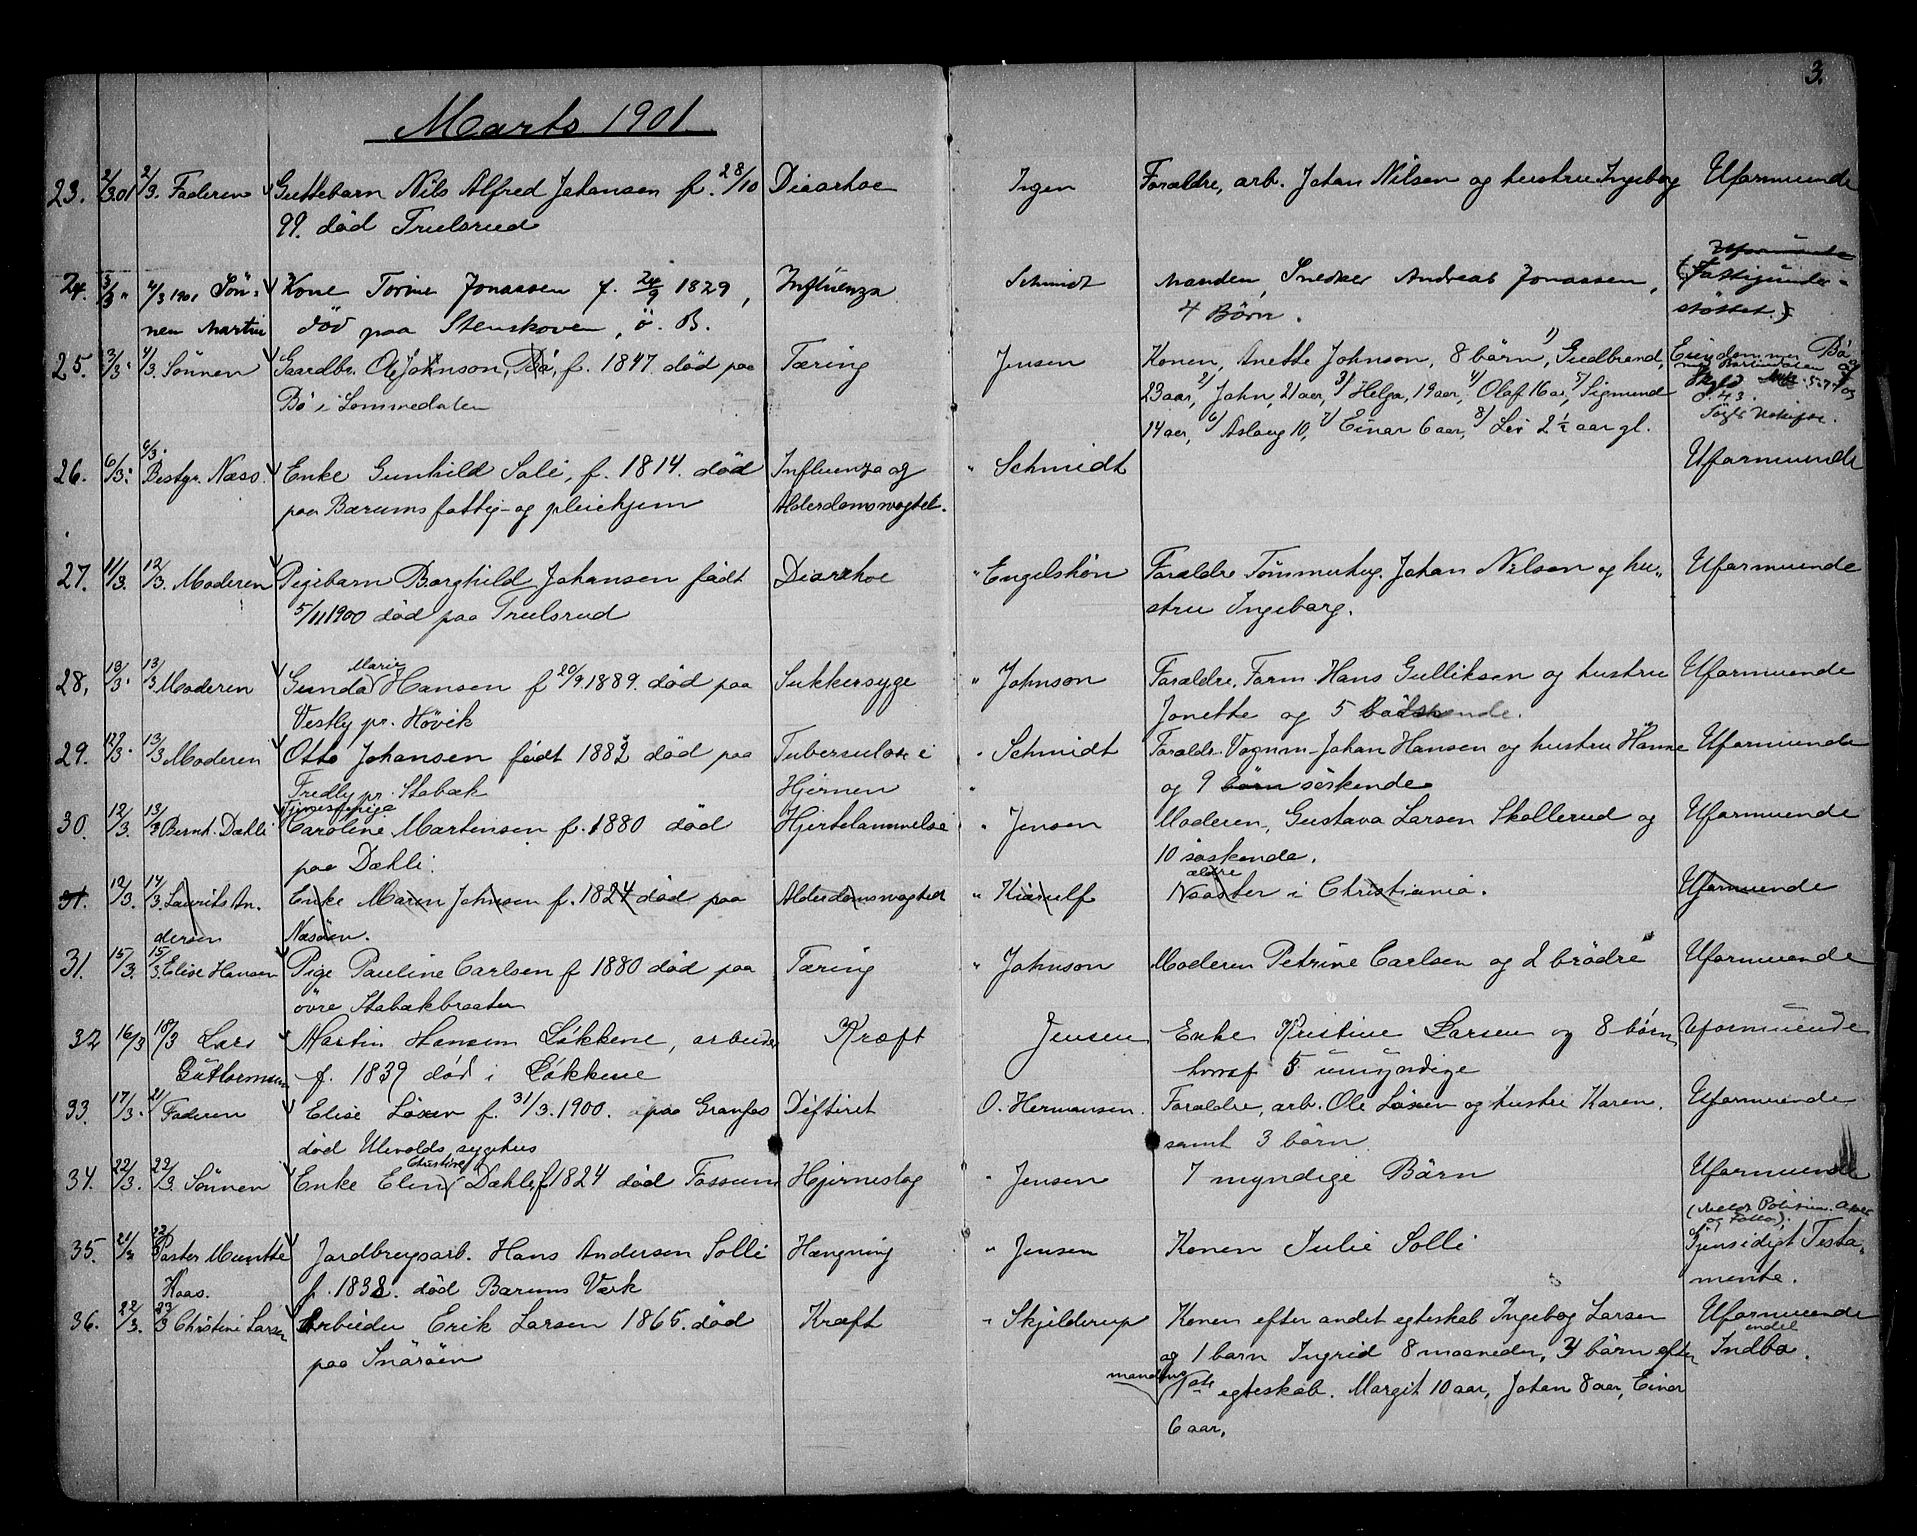 3.
Marts 1901.
23. 2/3.01 2/3. Faderen Guttebarn Nils Alfred Johansen f. 28/10 Diaarhoe Ingen Forældre, arb. Johan Nilsen og hustru Ingeborg Uformuende
99. død Trulsrud
24. 3/3 " 4/3 1901 Søn- Kone Torine Jonassen f. 24/9 1829, Influenza Schmidt Manden, Snedker Andreas Jonassen, Uformuende (Fattigunder-
nen Martin død paa Stenskoven, ö. B. 4 Børn. støttet.)
25. 3/3. 4/3. Sønnen Gaardbr. Ole Johnson, Bø, f. 1847. død paa Tæring Jensen Konen, Anette Johnson, 8 børn, 1) Gudbrand, Eiendommen Bø
Bø i Lommedalen 23 aar, 2) John, 21 aar, 3) Helga, 19 aar, 4) Olaf 16 a, 5) Sigmund
14 aar, 6) Aslaug 10, 7) Einar 6 aar, 8) Leif 2 ½ aar gl.
26. 6/3. 6/3. Bestyr. Næss. Enke Gunhild Sali, f. 1814. død Influenza og " Schmidt Uformuende
paa Bærums fattig- og pleiehjem Alderdomsvagtel.
27. 11/3. 12/3. Moderen Pigebarn Borghild Johansen født Diarrhoe " Engelshøn Forældre Tømmerhug. Johan Nilsen og hu- Uformuende
5/11 1900 død paa Trulsrud stru Ingeborg.
28. 13/3. 13/3 Moderen Gunda Marie Hansen f 20/9 1889. død paa Sukkersyge " Johnson Forældre, Form. Hans Gulliksen og hustru Uformuende
Vestly pr. Høvik Jonette og 5 södskende.
29. 12/3. 13/3 Moderen Otto Johansen født 1882 død paa Tuberculose i " Schmidt Forældr. Vognm. Johan Hansen og hustru Hanne Uformuende
Fredly pr. Stabæk Hjernen " og 9 børn søskende
30. 12/3. 13/3 Bernt. Dæhli Tjenestepige Caroline Martensen f. 1880 død Hjertelammelse " Jensen Moderen, Gustava Larsen Skollerud og Uformuende
paa Dæhli. 10 søskende.
31. 12/3. 14/3. Laurits An- Enke Maren Johnsen f. 1824 død paa Alderdomsvagtel " Kiærulf i Christiania. Uformuende
dersen Næsøen.
31. 15/3. 15/3. Elise Hansen Pige Pauline Carlsen f 1880 død paa Tæring " Johnson Moderen Petrine Carlsen og 2 brødre Uformuende
øvre Stabækbraaten
32 16/3 18/3 Lars Martin Hansen Løkkene, arbeider Kræft Jensen Enke Kristine Larsen og 8 børn Uformuende
Guttormsen f. 1839 død i Løkkene hvoraf 5 umyndige
33. 17/3. 21/ Faderen Elise Løxen f. 31/3. 1900. paa Granfos Difterit O. Hermansen. Forældre, arb. Ole Løxen og hustru Karen. Uformuende
død Ullevolds sygehus samt 3 børn
34. 22/3. 22/3. Sønnen Enke Elin Christine Dæhli, f 1824 død Fossum Hjerneslag " Jensen 7 myndige Børn Uformuende
35. 21/3 22/3 Pastor Munthe Jordbrugsarb. Hans Andersen Solli Hængning " Jensen Konen Julie Solli Gjensidigt Testa-
Kaas. f. 1838. død Bærums Værk mente.
36. 22/3. 23/3 Christine Larsen Arbeider Erik Larsen 1865. død Kræft " Skjelderup Konen efter andet egteskab Ingeborg Larsen Uformuende
paa Snarøen og 1 barn Ingrid 8 maaneder, 3 børn efter endel Indbo.
mandens 1ste egteskab. Margit 10 aar, Johan 8 aar, Einar
6 aar.